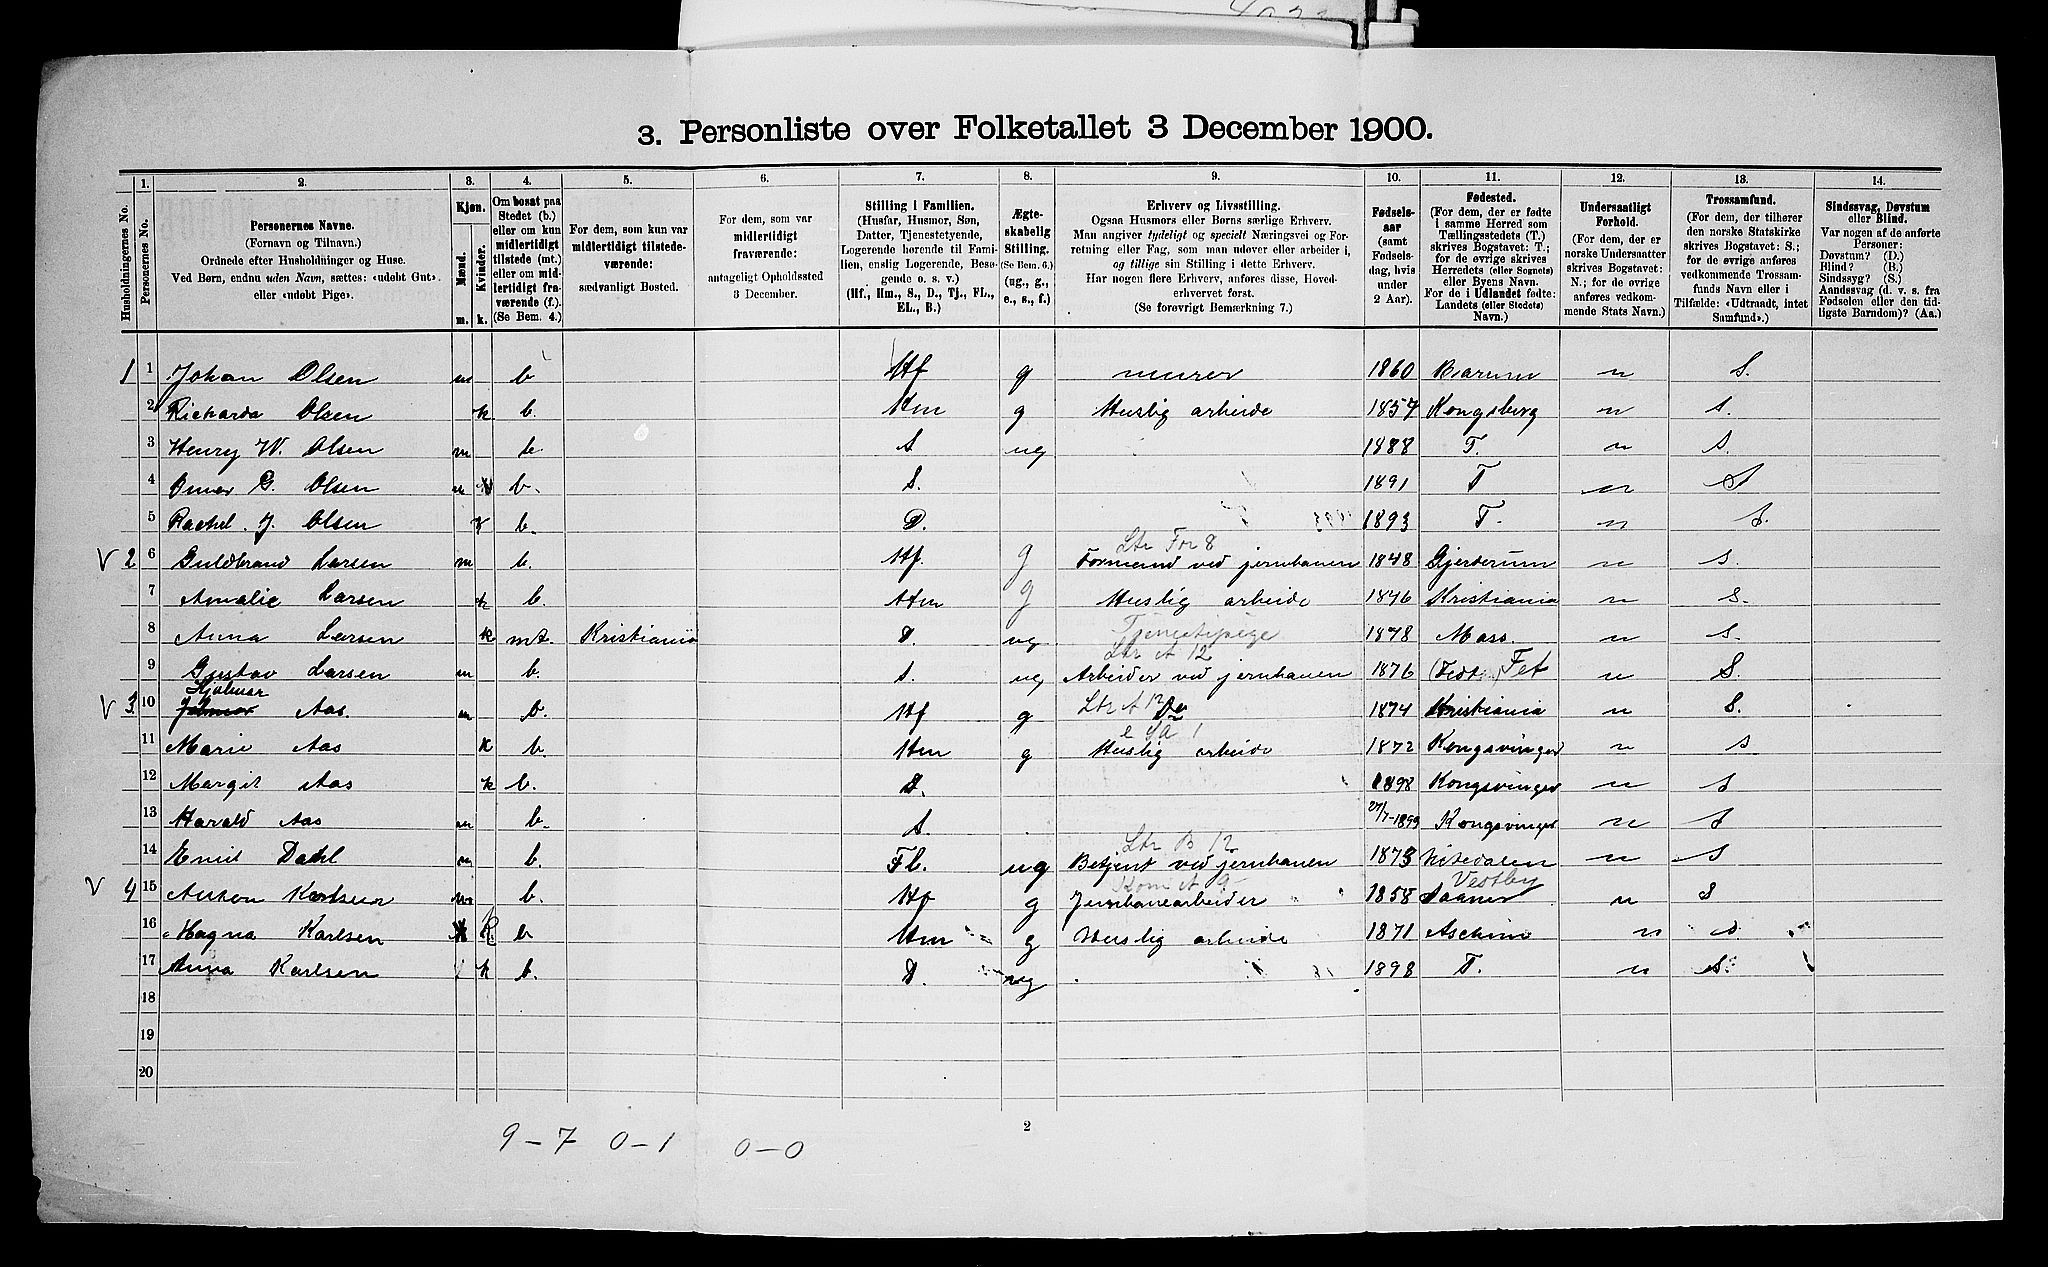 3. Personliste over Folketallet 3 December 1900.
Husholdningernes No.
1. Personernes No.
2. Personernes Navne.
(Fornavn og Tilnavn.)
Ordnede efter Husholdninger og Huse.
Ved Børn, endnu uden Navn, sættes: «udøbt Gut»
eller «udøbt Pige».
3. Kjøn.
Mænd. m.
Kvinder. k.
4. Om bosat paa
Stedet (b.)
eller om kun
midlertidigt
tilstede (mt.)
eller om mid-
lertidigt fra-
værende (f.).
(Se Bem. 4.)
5. For dem, som kun var
midlertidigt tilstede-
værende:
sædvanligt Bosted.
6. For dem, som var
midlertidigt
fraværende:
antageligt Opholdssted
3 December.
7. Stilling i Familien.
(Husfar, Husmor, Søn,
Datter, Tjenestetyende,
Logerende hørende til Fami-
lien, enslig Logerende, Besø-
gende o. s. v.)
(Hf., Hm., S., D., Tj., FL.,
EL., B.)
8. Ægte-
skabelig
Stilling.
(Se Bem. 6.)
(ug., g.,
e., s., f.)
9. Erhverv og Livsstilling.
Ogsaa Husmors eller Børns særlige Erhverv.
Man angiver tydeligt og specielt Næringsvei og For-
retning eller Fag, som man udøver eller arbeider i,
og tillige sin Stilling i dette Erhverv.
Har nogen flere Erhverv, anføres disse, Hoved-
erhvervet først.
(Se forøvrigt Bemærkning 7.)
10. Fødsels-
aar
(samt
Fødsels-
dag, hvis
under
2 Aar).
11. Fødested.
(For dem, der er fødte
i samme Herred som
Tællingsstedets (T.)
skrives Bogstavet: T.;
for de øvrige skrives
Herredets (eller Sognets)
eller Byens Navn.
For de i Udlandet fødte:
Landets (eller Stedets)
Navn.)
12. Undersaatligt
Forhold.
(For de, der er
norske Undersaatter
skrives Bogstavet:
N.; for de øvrige
anføres vedkom-
mende Stats Navn.)
13. Trossamfund.
(For dem, der tilhører
den norske Statskirke
skrives Bogstavet: S.;
for de øvrige anføres
vedkommende Trossam-
funds Navn eller i
Tilfælde: «Udtraadt, intet
Samfund».)
14. Sindssvag, Døvstum
eller Blind.
Var nogen af de anførte
Personer:
Døvstum? (D.)
Blind? (B.)
Sindssyg? (S.)
Aandssvag (d. v. s. fra
Fødselen eller den tid-
ligste Barndom)? (Aa.)
1 1 Johan Olsen m b Hf g murer 1860 Bærum n S.
2 Richarda Olsen k b. Hm g Huslig arbeide 1857 Kongsberg n S.
3 Henry W. Olsen m b. S ug 1888 T. n S.
4 G. Olsen m b. S. 1891 T n S
5 Rachel. J. Olsen k b. D. 1893 T. n S.
Ltr For 8
V 2 6 Guldbrand Larsen m b. Hf. g Formand ved jernbanen 1848 Gjerderum n S.
7 Amalie Larsen k b. Hm g Huslig arbeide 1846 Kristiania n S.
Tjenestepige
8 Anna Larsen k mt. Kristiania D. ug 1878 Moss. n S.
Ltr A 12
9 Gustav Larsen m b. S. ug Arbeider ved jernbanen 1876 Fet n S.
Hjalmar
V 3. 10 Aas. m b. Hf g Ltr A 12 Do 1874 Kristiania n S.
11 Marie Aas k b. Hm g Huslig arbeide 1872 Kongsvinger n S
12 Margit Aas k b. D. 1898 Kongsvinger n S
13 Harald Aas m b. S. 27/7-1899 Kongsvinger n S
Ltr B 12
14 Emil Dahl m b. Fl. ug Betjent ved jernbanen 1873 Nitedalen n S
Kom A 9 Vestby
V 4 15 Anton Karlsen m b. Hf g Jernbanearbeider 1858 n S
16 Magna Karlsen k b Hm g Huslig arbeide 1871 Askim n S.
17 Anna Karlsen k b. D. ug 1898 T. n S.
18
19
20
2
9-7 0-1 0-0